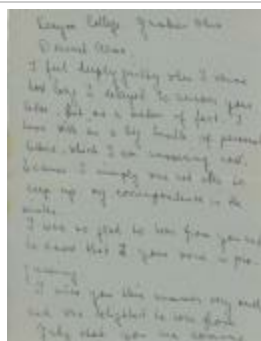 Kenyon College Gambier Ohio
Dearest
I feel deeply guilty when I
how long I delayed to answer your
letter. But as a matter of fact, I
have with me a big bundle of personal
letters which I am answering now,
because I simply was not able to
keep up my correspondence in the
I was so glad to hear from you and
to know that your voice is
I miss you this summer very much
and was delighted to hear from
that you are coming